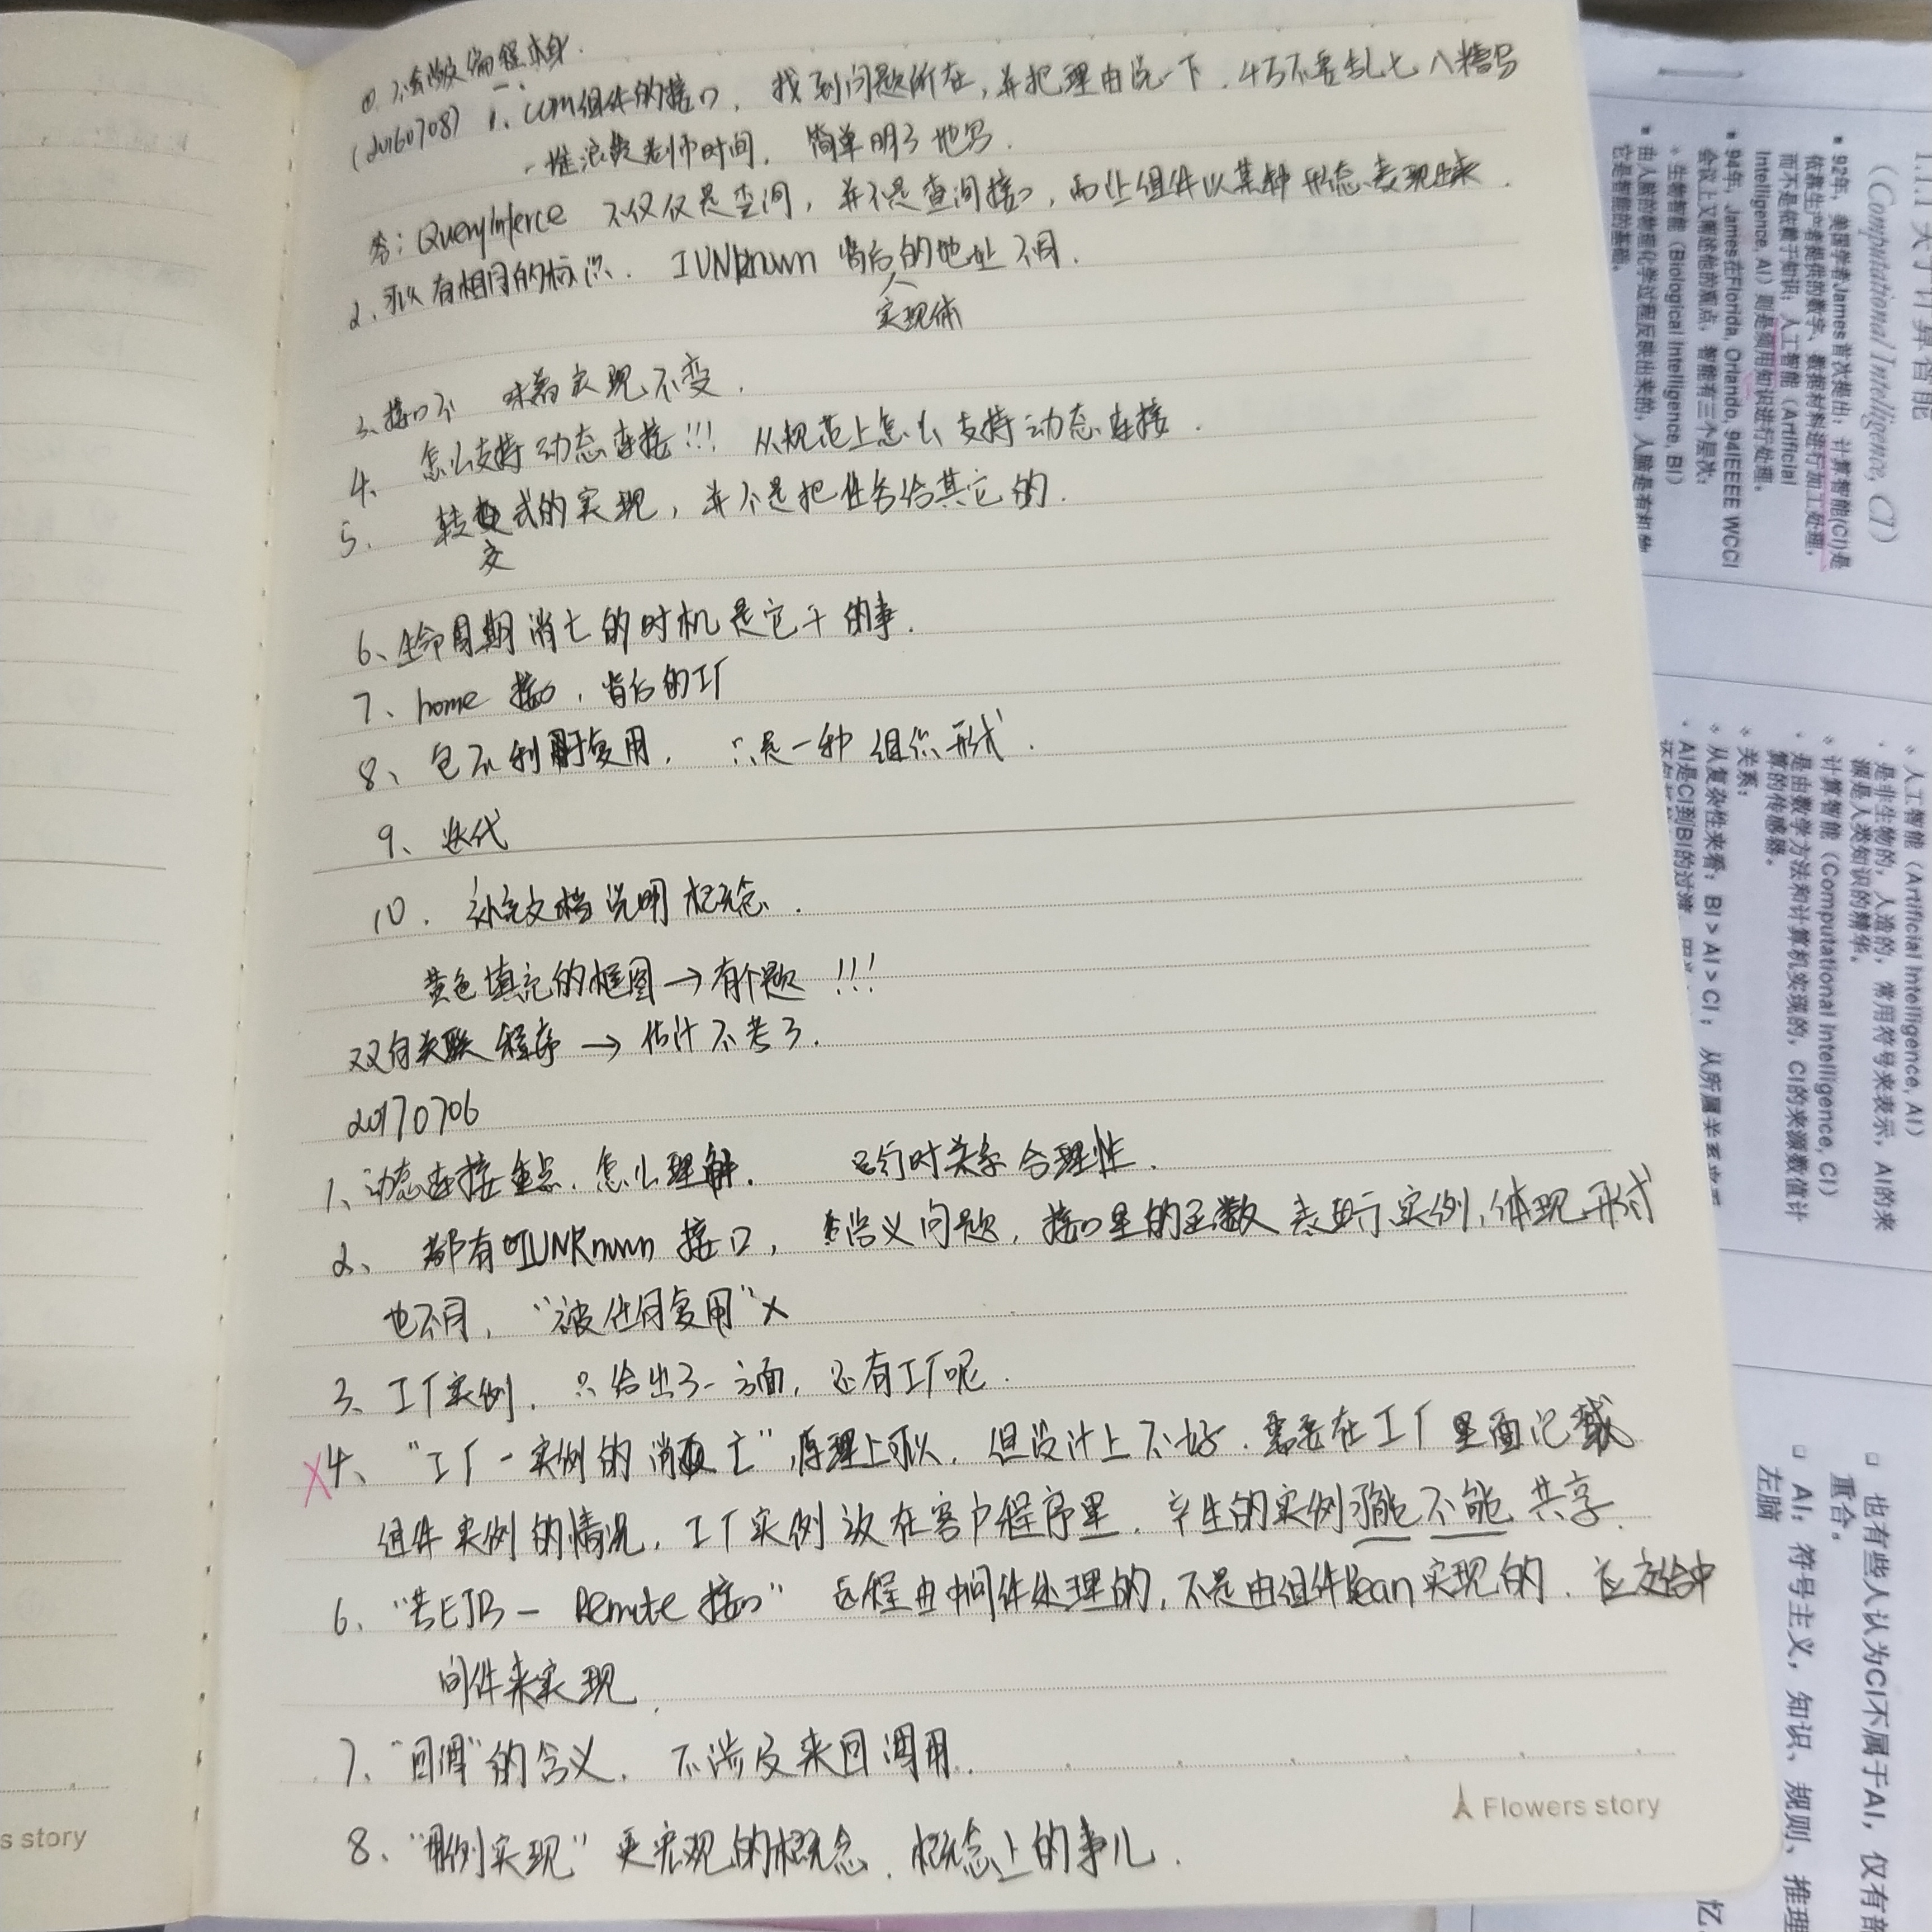 编程
(20160708) 1、COM组件的接口，找到问题所在，并把理由说一下，千万不要乱七八糟写
一堆浪费老师时间，简单明了地写．
答：QueryInferce 不仅仅是查询，并不是查询接口，而让组件以某种形态表现出来．
2、可以有相同的标识．IUNknown 背后的地址不同．
实现体
3、接口不 味着实现不变．
4、怎么支持动态连接!!! 从规范上怎么支持动态连接．
5. 转 式的实现，并不是把任务给其它的．
交
6、生命周期消亡的时机是它干的事．
7、home 接口，背后的工厂
8、包不利于复用，只是一种组织形式．
9、迭代
10．补充文档说明概念．
黄色填充的框图→有个题 !!!
双向关联程序 → 估计不考了．
20170706
1、动态连接重点．怎么理解． 运行时关系合理性．
2、都有IUNKnown 接口，含义问题，接口里的函数表示实例，体现形式
也不同，“被任何复用”×
3、工厂实例．只给出了一方面，还有工厂呢．
×4、“工厂-实例的消亡”原理上可以，但设计上不好．需要在工厂里面记载
组件实例的情况，工厂实例放在客户程序里．产生的实例可能不能共享．
6、“若EJB — Remote 接口” 远程由中间件处理的，不是由组件Bean实现的．应交给中
间件来实现．
7、“回调”的含义． 不涉及来回调用．
8、“用例实现” 更宏观的概念．概念上的事儿．
Flowers story
s story
1.1.1 关于计算智能
(Computational Intelligence, CI)
92年，美国学者James首次提出：计算智能(CI)是
依靠生产者提供的数字、数据材料进行加工处理，
而不是依赖于知识；人工智能（Artificial
Intelligence, AI）则是须用知识进行处理。
94年，James在Florida, Orlando, 94IEEE WCCI
会议上又阐述他的观点，智能有三个层次：
生物智能（Biological Intelligence, BI）
由人脑的物理化学过程反映出来的，人脑是有机物
它是智能的基础。
人工智能（Artificial Intelligence, AI）
是非生物的，人造的，常用符号来表示，AI的来
源是人类知识的精华。
计算智能（Computational Intelligence, CI）
是由数学方法和计算机实现的，CI的来源数值计
算的传感器。
关系：
从复杂性来看：BI > AI > CI；从所属关系来看
AI是CI到BI的过渡
也有些人认为CI不属于AI，仅有部
重合。
AI：符号主义，知识、规则、推理
左脑
忆